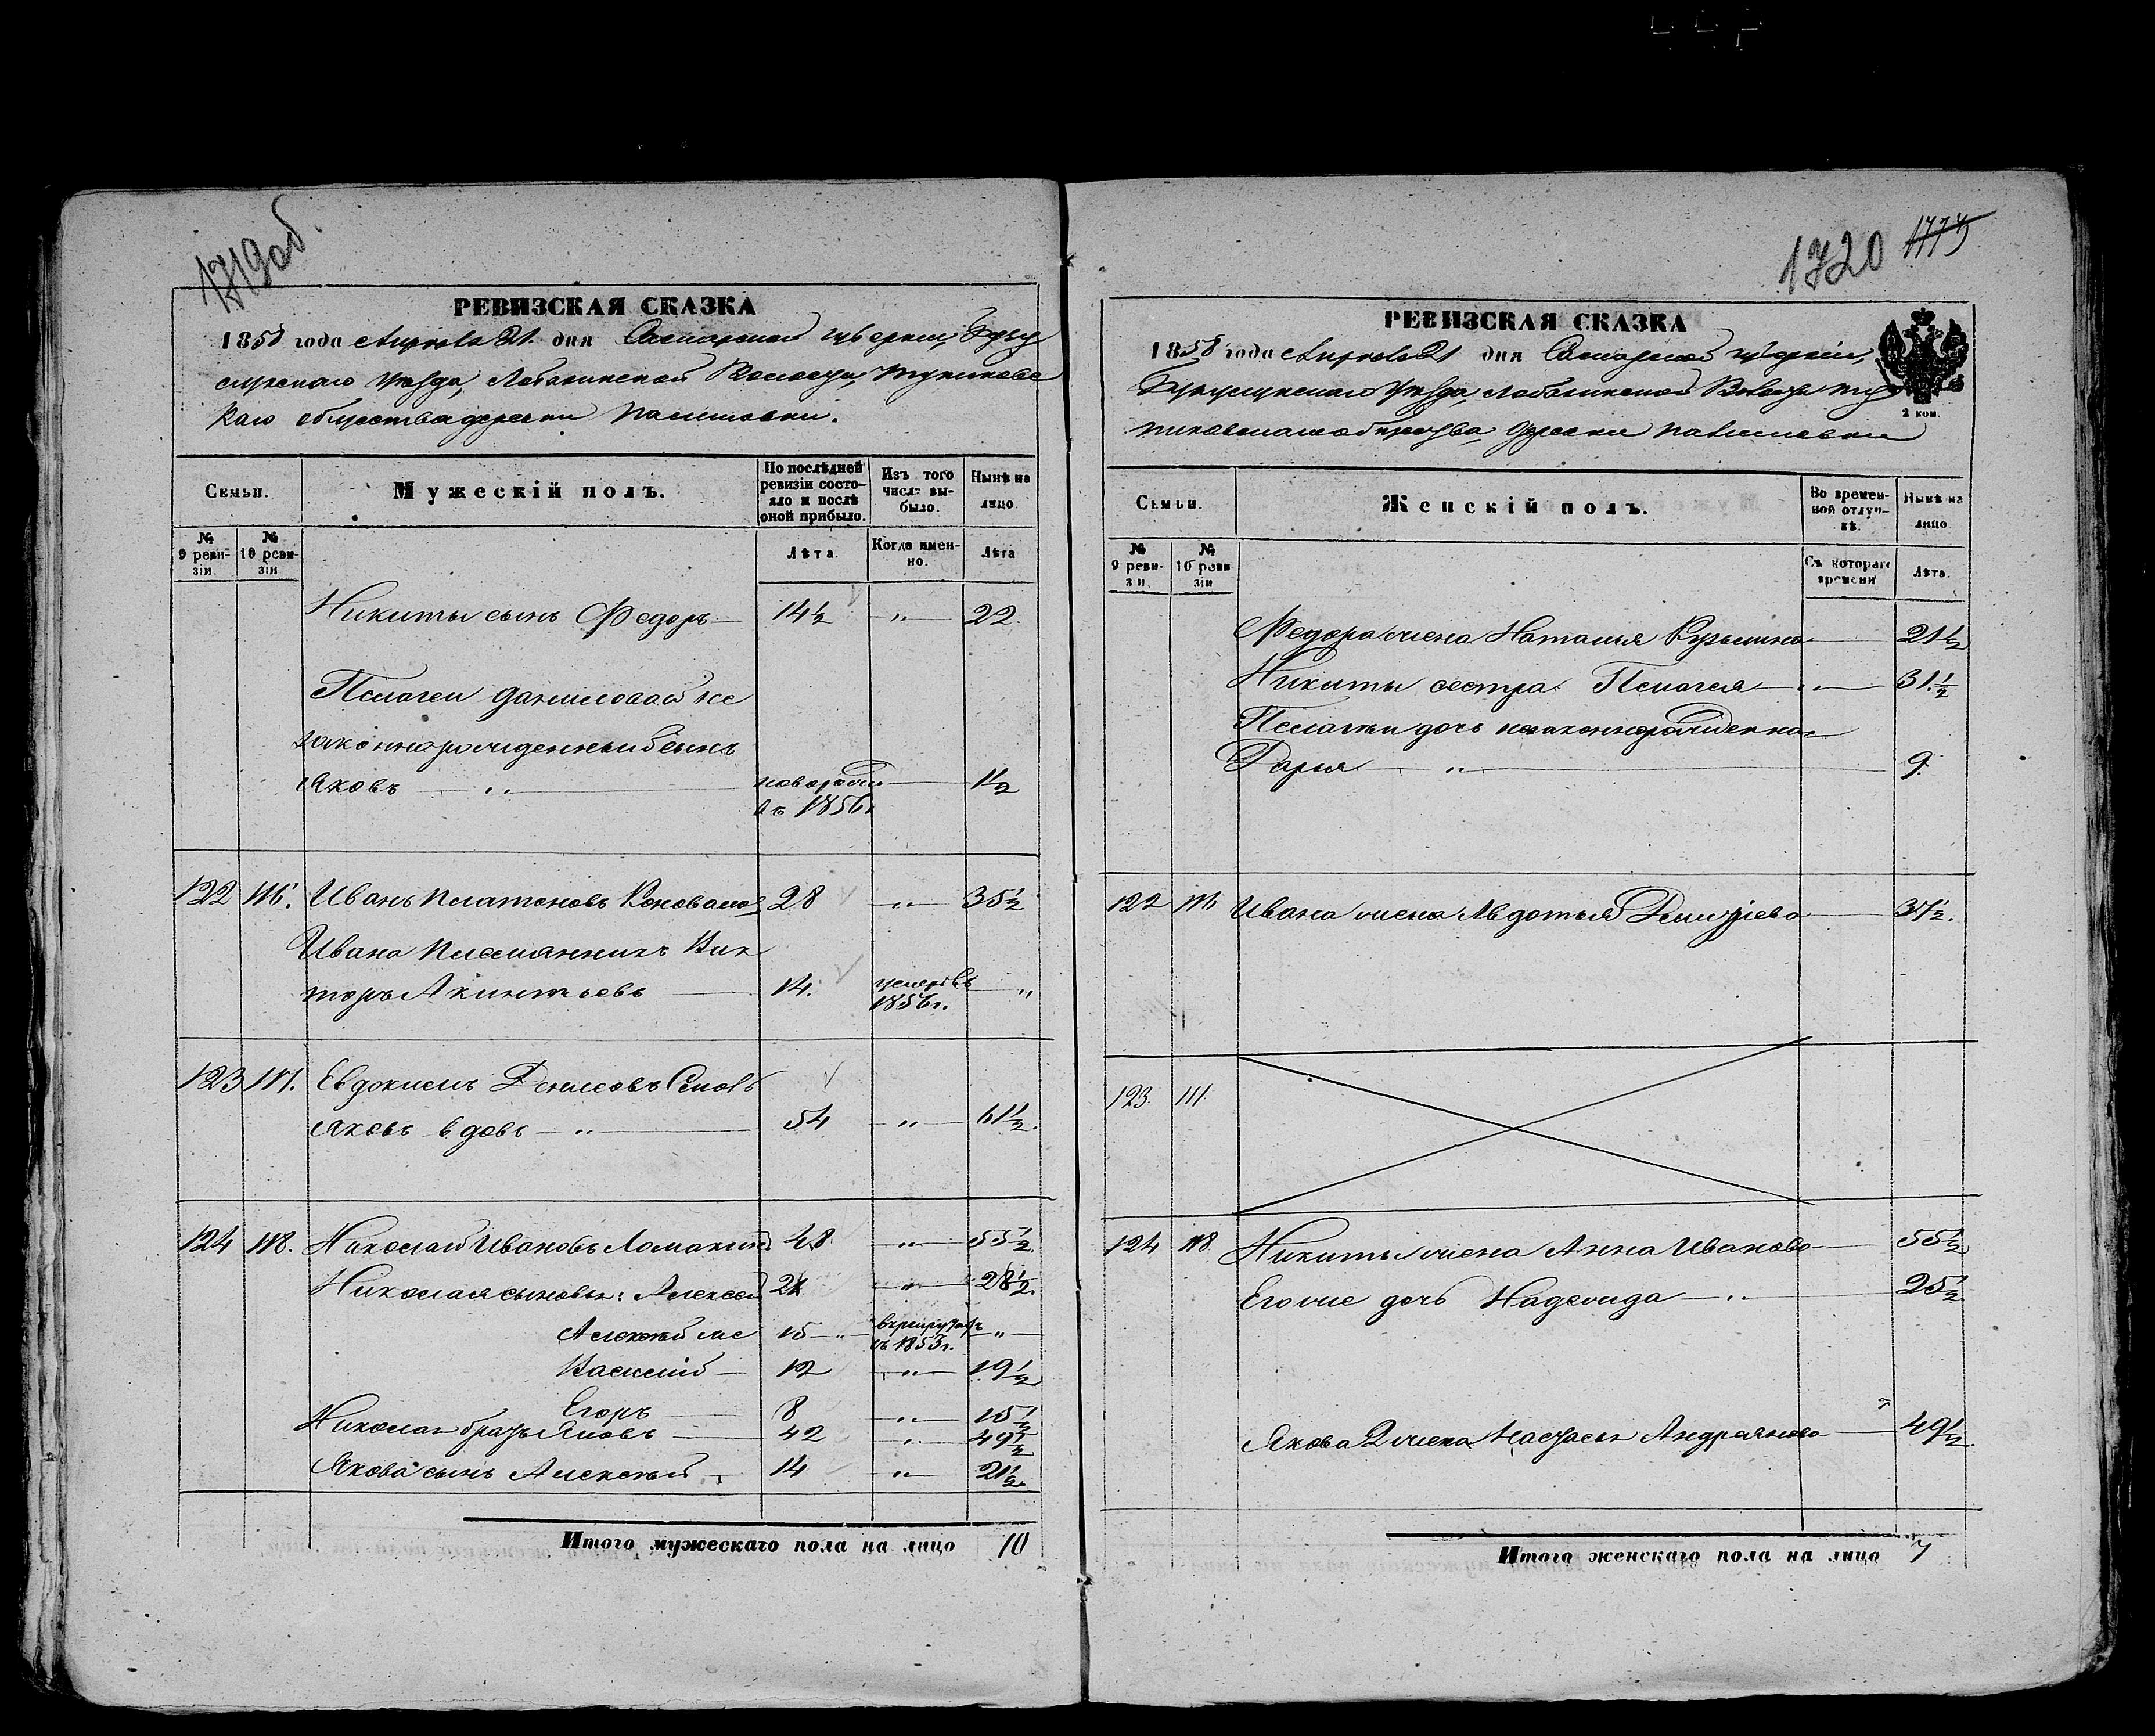 1719 об.
РЕВИЗСКАЯ СКАЗКА
1858 года Апреля 21. дня Самарской губернии, Бугу
гурскаго Уезда, Волости,
каго общества деревни
Семьи.
Мужескій полъ.
По послѣдней ревизіи состояло и послѣ оной прибыло.
Изъ того числа выбыло.
Нынѣ на лицо.
№ 9 ревизіи
№ 10 ревизіи
Лѣта.
Когда именно.
Лѣта
Никиты сынъ Федоръ 14½ " 22.
Пелагеи Даниловой не
законнорожденный сынъ
Яковъ " новорожд 1½
въ 1856г
122 116. Иванъ Платоновъ Коновалов 28 " 35½
Ивана племянникъ Вик
торъ Акинтьевъ 14. умеръ въ 1856г. "
123 117. Евдокимъ Денисовъ
Яковъ вдовъ " 54 " 61½.
124 118. Николай Ивановъ Ломакинъ 48 " 55½.
Николая сыновья: Алексей 21 " 28½.
Алексей ме 15 " въ рекрутахъ съ 1853г. "
Василій 12 " 19½
Егоръ 8 " 15½
Николая братъ Яковъ 42 " 49½
Якова сынъ Алексей 14 " 21½.
Итого мужескаго пола на лицо 10
1720 1775
РЕВИЗСКАЯ СКАЗКА
1858 года Апреля 21 дня Самарской губерніи,
Уезда, Волости
общества деревни
2 коп.
Семьи.
Женскій полъ.
Во временной отлучкѣ.
Нынѣ на лицо
№ 9 ревизіи
№ 10 ревизіи
Съ котораго времени
Лѣта.
Федора жена Наталья Кузьмина 21½
Никиты сестра Пелагея " 31.½
Пелагеи дочь незаконнорожденная
Дарья " 9.
122 116 Ивана жена Авдотья 37½.
123. 117.
124 118 Никиты жена Анна Иванова 55½
Его же дочь Надежда " 25½
Якова 2 жена Настасья Андреянова " 49½
Итого женскаго пола на лицо 7